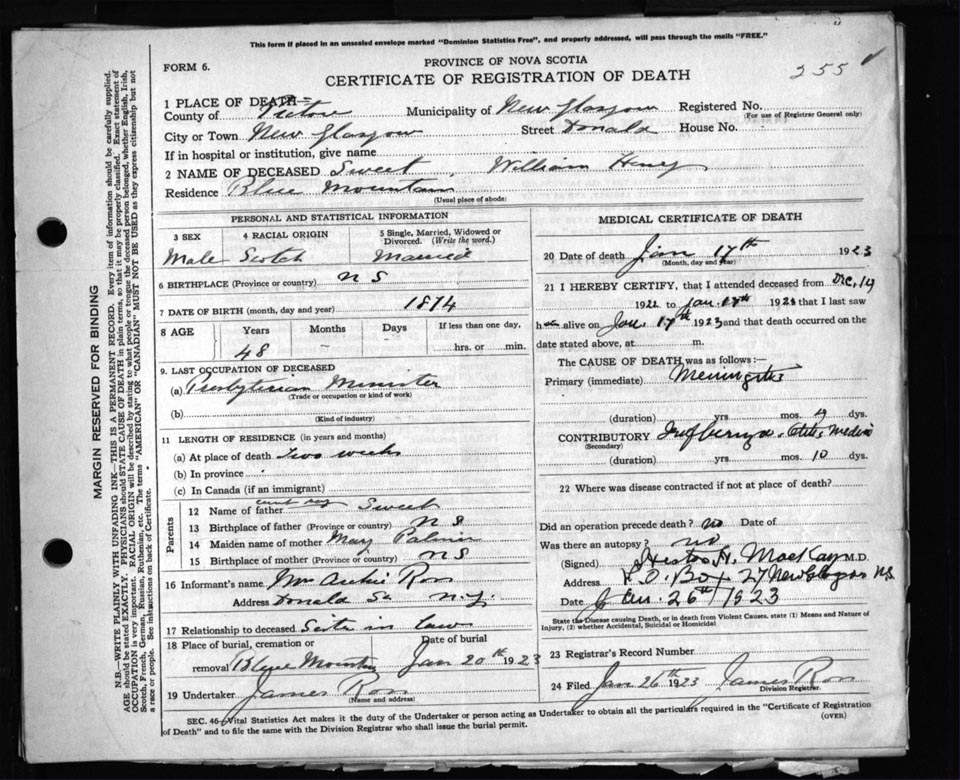 This form if placed in an unsealed envelope marked "Dominion Statistics Free", and properly addressed, will pass through the mails "FREE."
FORM 6.
PROVINCE OF NOVA SCOTIA
CERTIFICATE OF REGISTRATION OF DEATH
255
1 PLACE OF DEATH—
County of Pictou Municipality of New Glasgow Registered No.
(For use of Registrar General only)
City or Town New Glasgow Street Donald House No.
If in hospital or institution, give name
2 NAME OF DECEASED Sweet, William Henry
Residence Blue Mountain
(Usual place of abode)
PERSONAL AND STATISTICAL INFORMATION
3 SEX 4 RACIAL ORIGIN 5 Single, Married, Widowed or Divorced. (Write the word.)
Male Scotch Married
6 BIRTHPLACE (Province or country) N S
7 DATE OF BIRTH (month, day and year) 1874
8 AGE Years Months Days If less than one day,
48 hrs. or min.
9. LAST OCCUPATION OF DECEASED
(a) Presbyterian Minister
(Trade or occupation or kind of work)
(b)
(Kind of industry)
11 LENGTH OF RESIDENCE (in years and months)
(a) At place of death two weeks
(b) In province
(c) In Canada (if an immigrant)
Parents
12 Name of father Sweet
13 Birthplace of father (Province or country) N S
14 Maiden name of mother Mary Palmer
15 Birthplace of mother (Province or country) N S
16 Informant's name Mrs Archie Ross
Address Donald St N.G.
17 Relationship to deceased Sister in law
18 Place of burial, cremation or removal Blue Mountain Date of burial Jan 20th 1923
19 Undertaker James Ross
(Name and address)
MEDICAL CERTIFICATE OF DEATH
20 Date of death Jan 17th 1923
(Month, day and year)
21 I HEREBY CERTIFY, that I attended deceased from Dec. 14
1922 to Jan. 17th 1923 that I last saw
h im alive on Jan. 17th 1923 and that death occurred on the
date stated above, at m.
The CAUSE OF DEATH was as follows:—
Primary (immediate) Meningitis
(duration) yrs mos. 4 dys.
CONTRIBUTORY Otitis Media
(Secondary)
(duration) yrs. mos. 10 dys.
22 Where was disease contracted if not at place of death?
Did an operation precede death? no Date of
Was there an autopsy? no
(Signed) H. MacKay M.D.
Address P.O. Box 27 New Glasgow N.S.
Date Jan. 26th/1923
State the Disease causing Death, or in death from Violent Causes, state (1) Means and Nature of Injury, (2) whether Accidental, Suicidal or Homicidal
23 Registrar's Record Number
24 Filed Jan 26th 1923 James Ross
Division Registrar.
SEC. 46—Vital Statistics Act makes it the duty of the Undertaker or person acting as Undertaker to obtain all the particulars required in the "Certificate of Registration of Death" and to file the same with the Division Registrar who shall issue the burial permit.
(OVER)
MARGIN RESERVED FOR BINDING
N.B.—WRITE PLAINLY WITH UNFADING INK—THIS IS A PERMANENT RECORD. Every item of information should be carefully supplied.
AGE should be stated EXACTLY. PHYSICIANS should STATE CAUSE OF DEATH in plain terms, so that it may be properly classified. Exact statement of
OCCUPATION is very important. RACIAL ORIGIN will be described by stating to what people or tongue the deceased person belonged, whether English, Irish,
Scotch, French, German, Russian, Ruthenian, etc. The terms "AMERICAN" OR "CANADIAN" MUST NOT BE USED as they express citizenship but not
a race or people. See instructions on back of Certificate.